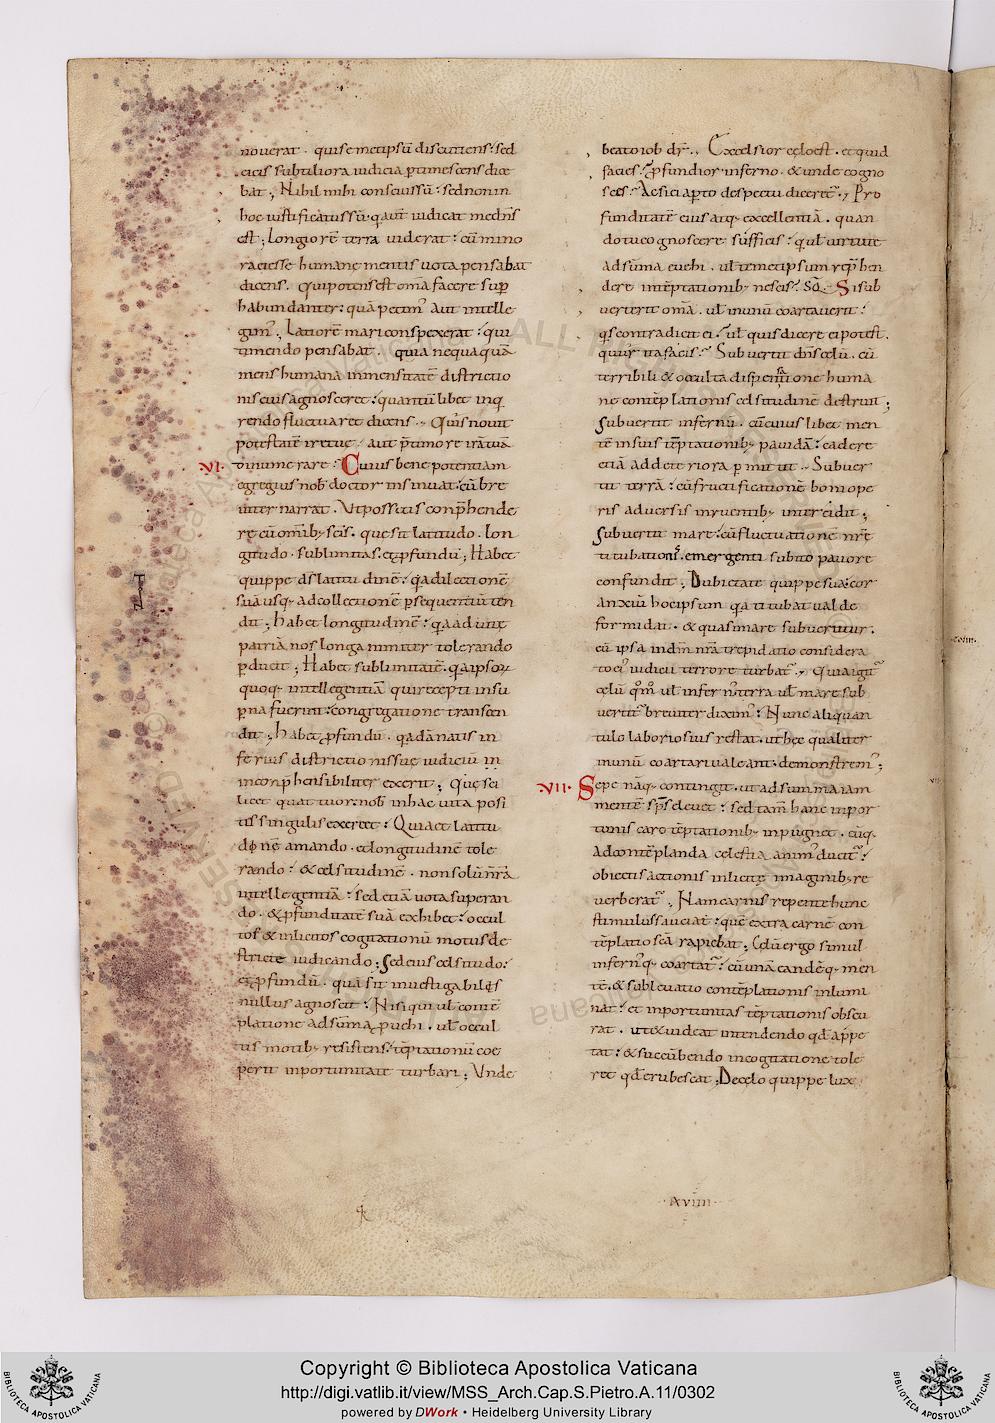 nouerat . qui semetipsū discutiens : sed
eius subtiliora iudicia ptimescens dice
bat ., Nihil mihi conscius sū : sed non in
hoc iustificatus sū . q aut iudicat me dn̄s
est ; Longiorē terra uiderat : cū mino
ra ee&esse humane mentis uota pensabat
dicens . Qui potens est om̄a facere sup
habundanter : quā petim' aut intelle
gim' . Latiorē mari conspexerat : qui
timendo pensabat . quia nequaquā
mens humana inmensitatē districtio
nis eius agnosceret : quantū libet inq
rendo fluctuaret dicens ., Quis nouit
potestatē irę tuę / aut p timore irā tuā
VI. dinumerare : Cuius bene potentiam
egregius nob doctor insinuat : cū bre
uiter narrat . Ut possitis conp̄hende
re cū omīb; scīs . que sit latitudo . lon
gitudo . sublimitas . & pfundū ; Habet
quippe ds latitudinē : q a dilectionē
suā usq; ad collectionē psequentiū ten
dit ; habet longitudinē : q a ad uitę
patriā nos longanimiter tolerando
pducit ; Habet sublimitatē . q a ipsoꝝ
quoq; intellegentiā qui recepti in su
perna fuerint : congregatione transcen
dit ; habet pfundū . q a dānatis in
ferius districtionis suę iudiciū
inconp̄hensibiliter exerit ; Quę sci
licet quattuor nob in hac uita posi
tis singulis exercet : Quia et latitu
dinē amando . & longitudinē tole
rando : & celsitudinē . non solū nr̄ā
intellegentiā : sed etiā uota superan
do . & pfunditatē suā exhibet : occul
tos & inlicitos cogitationū motus de
stricte iudicando ; Sed eius celsitudo :
& pfundū . quā sit inuestigabilis
nullus agnoscit : Nisi qui ul contē
platione ad sūma puehi . ul occul
tis motib; resistens : tēptationū coe
perit inportunitate turbari ; Unde
beato iob dr ., Excelsior cęlo est . et quid
facies : pfundior inferno . & unde cogno
sces : Ac si ei apto despectu diceret ., Pro
funditatē eius atq; excellentiā . quan
do tu cognoscere sufficis : q ul uirtute
ad sūma euehi . ul temetipsum rep̄hen
dere in tēptationib; nescis : Sq. Si sub
uerterit om̄a . ul in unū coartauerit :
q̄s contradicit ei : ul quis dicere ei potest .
quur ita facis : Subuertit dn̄s cęlū . cū
terribili & occulta dispensatione huma
nę contēplationis celsitudinē destruit ;
Subuertit infernū . cū cuiuslibet men
tē in suis tēptationib; pauidā : cadere
etiā ad deteriora pmittit ., Subuer
tit terrā : cū fructificationē boni ope
ris aduersis inruentib; intercidit ;
Subuertit mare : cū fluctuationē nr̄ę
titubationis . emergenti subito pauore
confundit ; Dubietate quippe sua : cor
anxiū hoc ipsum q a titubat ualde
formidat . & quasi mare subuertitur .
cū ipsa in dm̄ nr̄a trepidatio considera
to ei' iudicii terrore turbat ., Quia igit
cęlū qm̄ ul infernū terra ul mare sub
uertit breuiter dixim' : Nunc aliquan
tulo laboriosius restat . ut hęc qualiter
in unū coartari ualeant . demonstrem' ;
VII. Sepe nāq; contingit . ut ad summa iam
mentē sp̄s eleuet : sed tam hanc inpor
tunis caro tēptationib; inpugnet . cūq;
ad contēplanda cęlestia anim' ducit :
obiectis actionis inlicitę imaginib; re
uerberat ., Nam carnis repente hunc
stimulus sauciat : quē extra carnē con
tēplatio scā rapiebat ; Cęlū ergo simul
infernusq; coartat : cū unā eandēq; men
tē . & subleuatio contēplationis inlumi
nat : et inportunitas tēptationis obscu
rat . ut & uideat intendendo qd appe
tat : & succūbendo in cogitatione tole
ret qd erubescat ; De cęlo quippe lux
·Xviiii·
Copyright © Biblioteca Apostolica Vaticana
http://digi.vatlib.it/view/MSS_Arch.Cap.S.Pietro.A.11/0302
powered by DWork • Heidelberg University Library
BIBLIOTECA APOSTOLICA VATICANA
BIBLIOTECA APOSTOLICA VATICANA